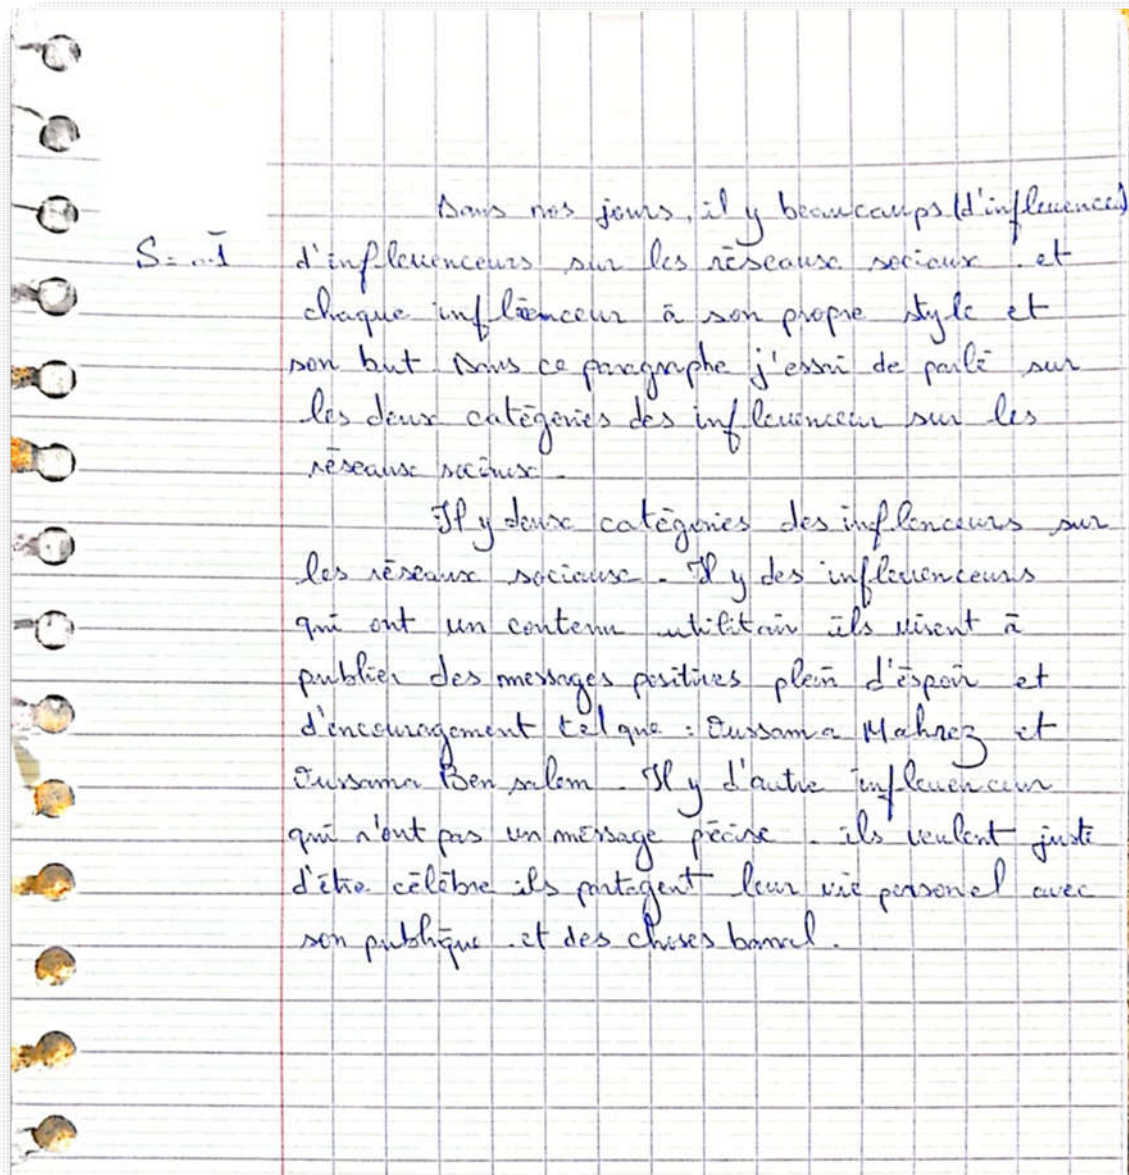 Dans nos jours, il y beaucoups (d'infleuences)
S = ..1 d'infleuenceurs sur les réseaux sociaux . et
chaque infléenceur à son propre style et
son but. Dans ce paragraphe j'essai de parlé sur
les deux catégories des infleuenceur sur les
réseaux sociaux.
Il y deux catégories des influnceurs sur
les réseaux sociaux. Il y des infleuenceurs
qui ont un contenu utilitair ils visent à
publier des messages positives plein d'éspoir et
d'encouragement tel que : Oussama Mahrez et
Oussama Ben salem. Il y d'autre infleuenceur
qui n'ont pas un méssage précise. ils veulent juste
d'être célèbre ils partagent leur vie personel avec
son publique . et des choses banal.